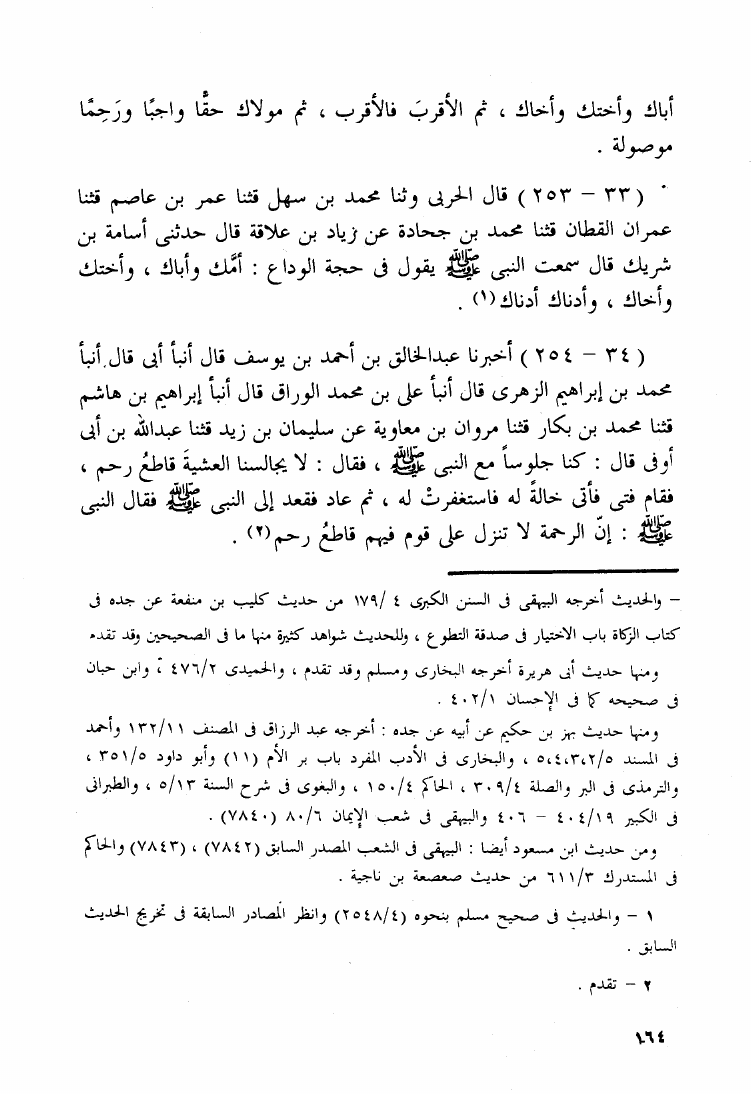 أباك وأختك وأخاك ، ثم الأقربَ فالأقرب ، ثم مولاك حقًّا واجبًا ورَحِمًا
موصولة .
( ٣٣ – ٢٥٣ ) قال الحربى وثنا محمد بن سهل قثنا عمر بن عاصم قثنا
عمران القطان قثنا محمد بن جحادة عن زياد بن علاقة قال حدثنى أسامة بن
شريك قال سمعت النبى ﷺ يقول فى حجة الوداع : أمَّك وأباك ، وأختك
وأخاك ، وأدناك أدناك(١) .
( ٣٤ – ٢٥٤ ) أخبرنا عبدالخالق بن أحمد بن يوسف قال أنبأ أبى قال أنبأ
محمد بن إبراهيم الزهرى قال أنبأ على بن محمد الوراق قال أنبأ إبراهيم بن هاشم
قثنا محمد بن بكار قثنا مروان بن معاوية عن سليمان بن زيد قثنا عبدالله بن أبى
أوفى قال : كنا جلوساً مع النبى ﷺ ، فقال : لا يجالسنا العشيةَ قاطعُ رحم ،
فقام فتى فأتى خالةً له فاستغفرتْ له ، ثم عاد فقعد إلى النبى ﷺ فقال النبى
ﷺ : إنّ الرحمة لا تنزل على قوم فيهم قاطعُ رحم(٢) .
– والحديث أخرجه البيهقى فى السنن الكبرى ٤ /١٧٩ من حديث كليب بن منفعة عن جده فى
كتاب الزكاة باب الاختيار فى صدقة التطوع ، وللحديث شواهد كثيرة منها ما فى الصحيحين وقد تقدم
ومنها حديث أبى هريرة أخرجه البخارى ومسلم وقد تقدم ، والحميدى ٤٧٦/٢ ، وابن حبان
فى صحيحه كما فى الإحسان ٤٠٢/١ .
ومنها حديث بهز بن حكيم عن أبيه عن جده : أخرجه عبد الرزاق فى المصنف ١٣٢/١١ وأحمد
فى المسند ٥،٤،٣،٢/٥ ، والبخارى فى الأدب المفرد باب بر الأم (١١) وأبو داود ٣٥١/٥ ،
والترمذى فى البر والصلة ٣٠٩/٤ ، الحاكم ١٥٠/٤ ، والبغوى فى شرح السنة ٥/١٣ ، والطبرانى
فى الكبير ٤٠٤/١٩ – ٤٠٦ والبيهقى فى شعب الإيمان ٨٠/٦ (٧٨٤٠) .
ومن حديث ابن مسعود أيضا : البيهقى فى الشعب المصدر السابق (٧٨٤٢) ، (٧٨٤٣) والحاكم
فى المستدرك ٦١١/٣ من حديث صعصعة بن ناجية .
١ – والحديث فى صحيح مسلم بنحوه (٢٥٤٨/٤) وانظر المصادر السابقة فى تخريج الحديث
السابق .
٢ – تقدم .
١٦٤